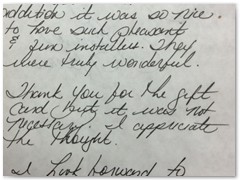 addition it was so nice.
to have such pleasant
& fun installers. They
were truly wonderful.
Thank you for the gift
card but it was not
necessary. I appreciate
the thought.
I look forward to